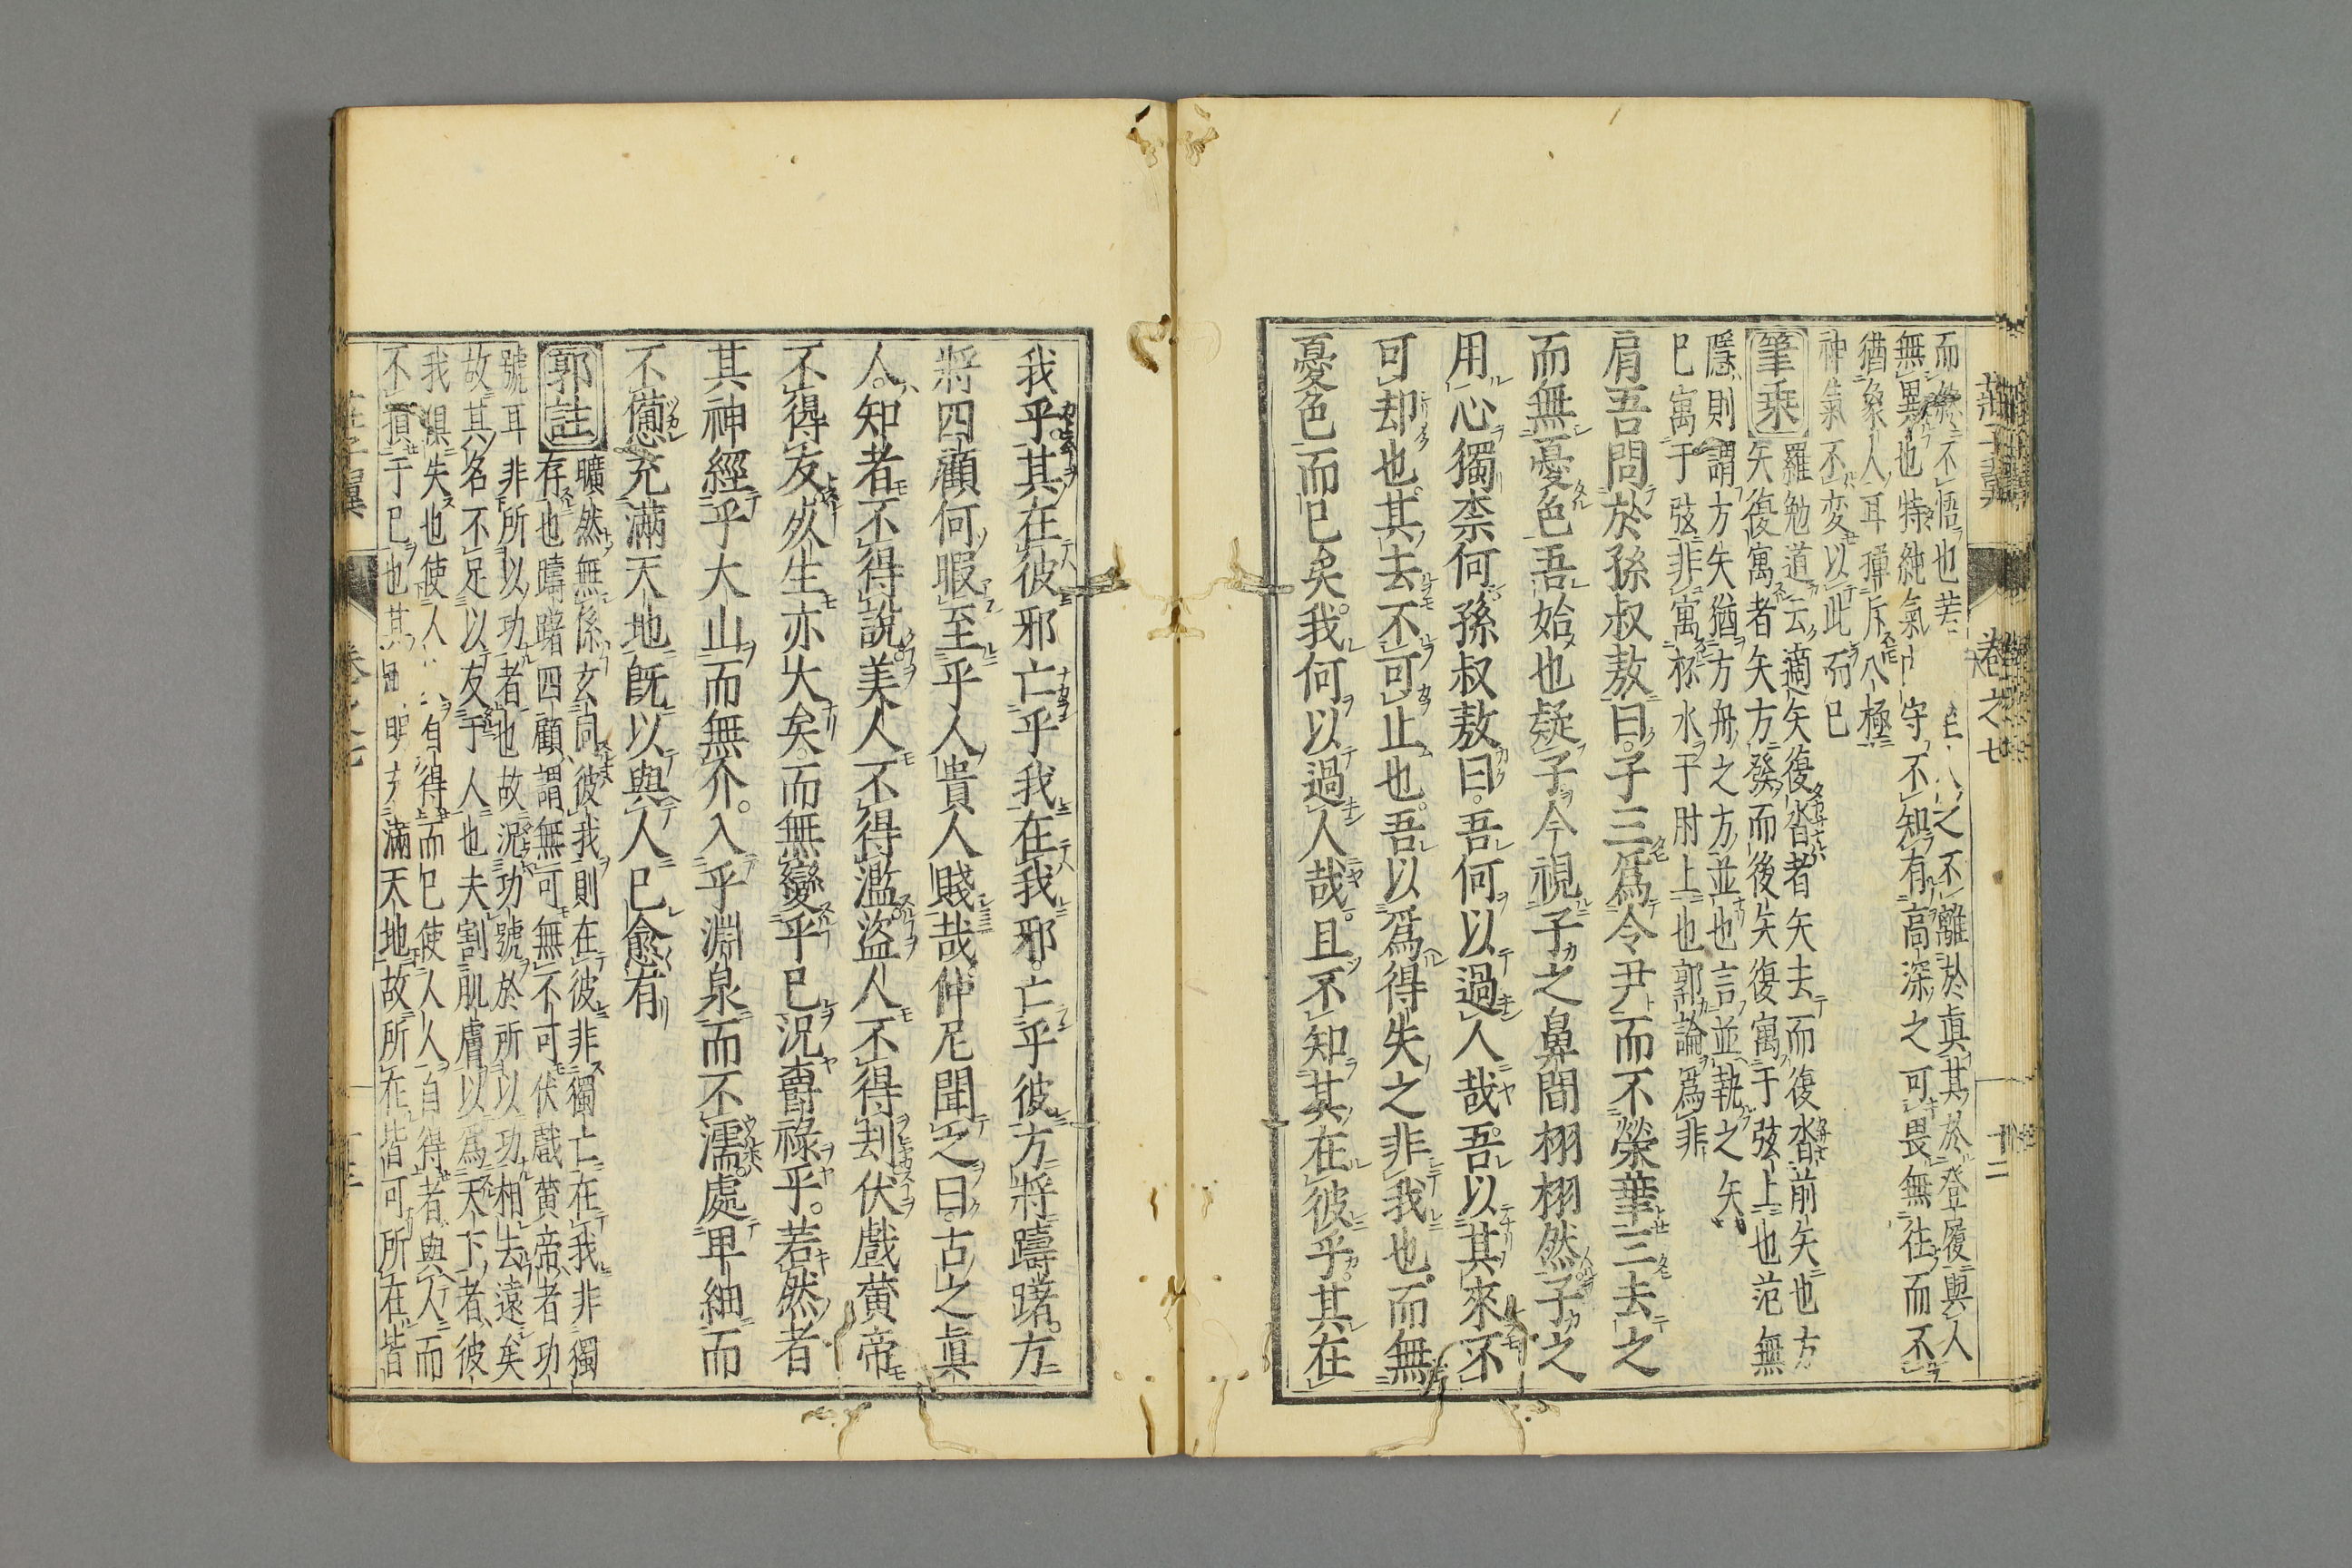 而終不悟也若之不離於眞其於登履與人
無異也特純氣守不知有高深之可畏無往而不
猶象人耳揮斥八極
神氣不変以此而已
筆乗
羅勉道云適矢復沓者矢去而復沓前矢也方
矢復寓者矢方發而後矢復寓于弦上也范無
隱則謂方矢猶方舟之方並也言並執之矢
已寓于弦非寓杯水于肘上也郭論爲非
肩吾問於孫叔敖曰子三爲令尹而不榮華三去之
而無憂色吾始也疑子今視子之鼻間栩栩然子之
用心獨柰何孫叔敖曰吾何以過人哉吾以其來不
可却也其去不可止也吾以爲得失之非我也而無
憂色而已矣我何以過人哉且不知其在彼乎其在
莊子翼 卷之七 十二
我乎其在彼邪亡乎我在我邪亡乎彼方將躊躇方
將四顧何暇至乎人貴人賤哉仲尼聞之曰古之眞
人知者不得說美人不得濫盗人不得刦伏戲黄帝
不得友死生亦大矣而無變乎已況爵祿乎若然者
其神經乎大山而無介入乎淵泉而不濡處卑細而
不憊充滿天地旣以與人已愈有
郭註
曠然無係玄同彼我則在彼非獨亡在我非獨
存也躊躇四顧謂無可無不可伏戲黄帝者功
號耳非所以功者也故況功號於所以功相去遠矣
故其名不足以友于人也夫割肌膚以爲天下者彼
我俱失也使人自得而已使人人自得者與人而
不損于已也其明滿天地故所在皆可所在皆